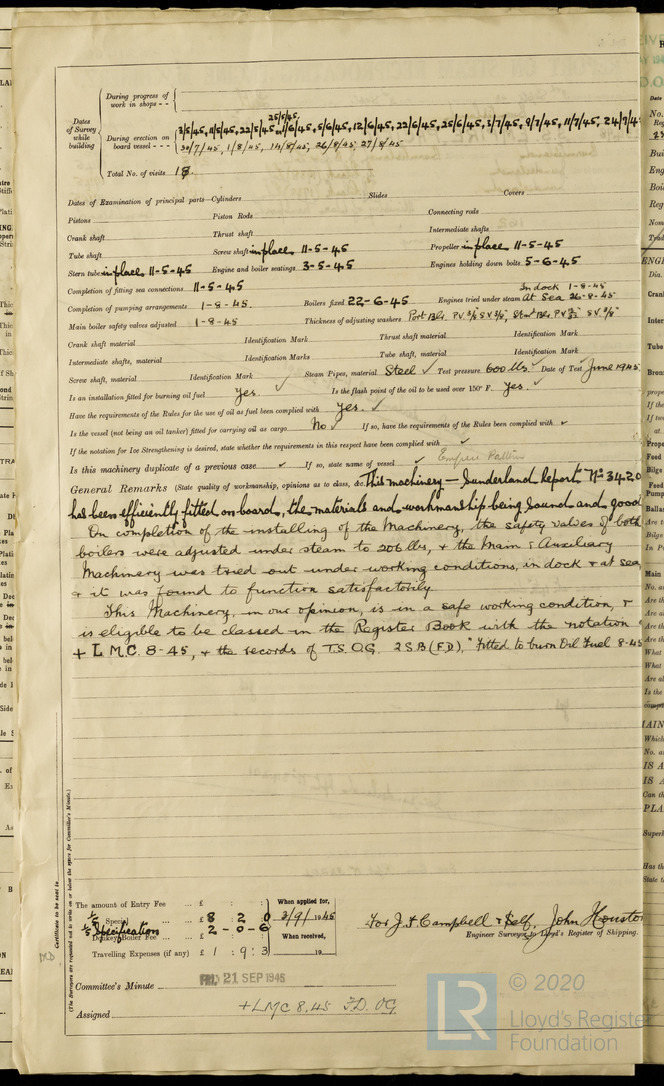 During progress of
work in shops - -
25/5/45,
Dates
of Survey
while
building
During erection on
board vessel - - -
3/5/45, 11/5/45, 22/5/45, 1/6/45, 5/6/45, 12/6/45, 22/6/45, 25/6/45, 3/7/45, 9/7/45, 11/7/45, 24/7/4
30/7/45, 1/8/45, 14/8/45, 26/8/45, 27/8/45
Total No. of visits 18.
Dates of Examination of principal parts—Cylinders Slides Covers
Pistons Piston Rods Connecting rods
Crank shaft Thrust shaft Intermediate shafts
Tube shaft Screw shaft in place 11-5-45 Propeller in place 11-5-45
Stern tube in place 11-5-45 Engine and boiler seatings 3-5-45 Engines holding down bolts 5-6-45
Completion of fitting sea connections 11-5-45
In dock 1-8-45
Completion of pumping arrangements 1-8-45. Boilers fixed 22-6-45 Engines tried under steam At Sea 26-8-45
Main boiler safety valves adjusted 1-8-45 Thickness of adjusting washers Port Blr. P.V. S.V. Star Blr P.V. S.V.
Crank shaft material Identification Mark Thrust shaft material Identification Mark
Intermediate shafts, material Identification Marks Tube shaft, material Identification Mark
Screw shaft, material Identification Mark Steam Pipes, material Steel Test pressure 600 lbs. Date of Test June 1945
Is an installation fitted for burning oil fuel Yes. Is the flash point of the oil to be used over 150° F. Yes.
Have the requirements of the Rules for the use of oil as fuel been complied with Yes.
Is the vessel (not being an oil tanker) fitted for carrying oil as cargo No If so, have the requirements of the Rules been complied with
If the notation for Ice Strengthening is desired, state whether the requirements in this respect have been complied with
Is this machinery duplicate of a previous case If so, state name of vessel Empire
General Remarks (State quality of workmanship, opinions as to class, &c. This machinery — Sunderland Report No 3420
has been efficiently fitted on board, the materials and workmanship being sound and good
On completion of the installing of the Machinery, the safety valves of both
boilers were adjusted under steam to 206 lbs, & the Main & Auxiliary
Machinery was tried out under working conditions, in dock & at sea,
& it was found to function satisfactorily.
This Machinery, in our opinion, is in a safe working condition, &
is eligible to be classed in the Register Book with the notation of
+ L.M.C. 8-45, & the records of T.S. O.G. 2 S.B (F.D), "Fitted to burn Oil Fuel 8-45
Certificate to be sent to
(The Surveyors are requested not to write on or below the space for Committee's Minute.)
The amount of Entry Fee ... £ : : When applied for,
1/5 Special ... ... £ 8 : 2 : 0 3/9/1945
1/5 Specification 2 - 0 - 6
Donkey Boiler Fee ... £ When received,
Travelling Expenses (if any) £ 1 : 9 : 3 19
For J. A Campbell & Self, John Houston
Engineer Surveyor to Lloyd's Register of Shipping.
Committee's Minute FRI. 21 SEP 1945
Assigned + LMC 8.45 F.D. OG
LR
© 2020
Lloyd's Register
Foundation